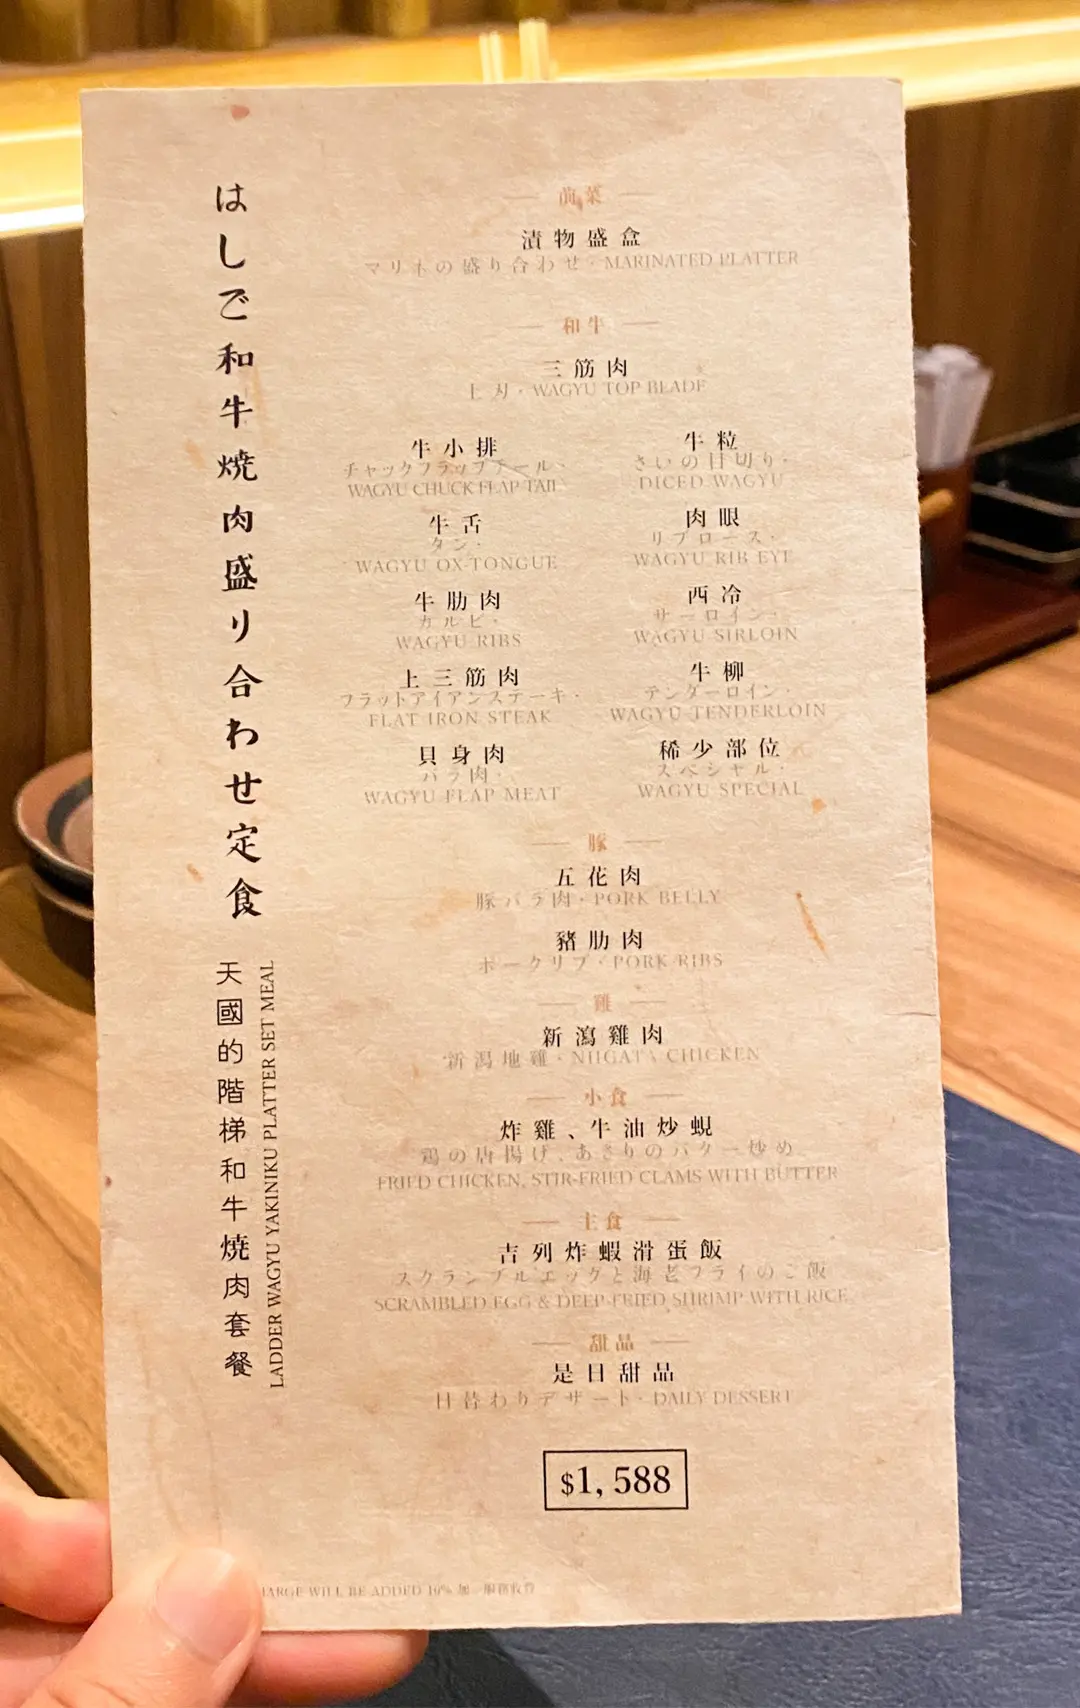 はしご和牛焼肉盛り合わせ定食
天國的階梯和牛燒肉套餐
LADDER WAGYU YAKINIKU PLATTER SET MEAL
前菜
漬物盛盒
マリネの盛り合わせ・MARINATED PLATTER
和牛
三筋肉
上刃・WAGYU TOP BLADE
牛小排
チャックフラップテール・
WAGYU CHUCK FLAP TAIL
牛粒
さいの目切り・
DICED WAGYU
牛舌
タン・
WAGYU OX-TONGUE
肉眼
リブロース・
WAGYU RIB EYE
牛肋肉
カルビ・
WAGYU RIBS
西冷
サーロイン・
WAGYU SIRLOIN
上三筋肉
フラットアイアンステーキ・
FLAT IRON STEAK
牛柳
テンダーロイン・
WAGYU TENDERLOIN
貝身肉
バラ肉・
WAGYU FLAP MEAT
稀少部位
スペシャル・
WAGYU SPECIAL
豚
五花肉
豚バラ肉・PORK BELLY
豬肋肉
ポークリブ・PORK RIBS
雞
新瀉雞肉
新潟地雞・NIIGATA CHICKEN
小食
炸雞、牛油炒蜆
鶏の唐揚げ、あさりのバター炒め
FRIED CHICKEN, STIR-FRIED CLAMS WITH BUTTER
主食
吉列炸蝦滑蛋飯
スクランブルエッグと海老フライのご飯
SCRAMBLED EGG & DEEP-FRIED SHRIMP WITH RICE
甜品
是日甜品
日替わりデザート・DAILY DESSERT
$1,588
WILL BE ADDED 10% 加一服務收費